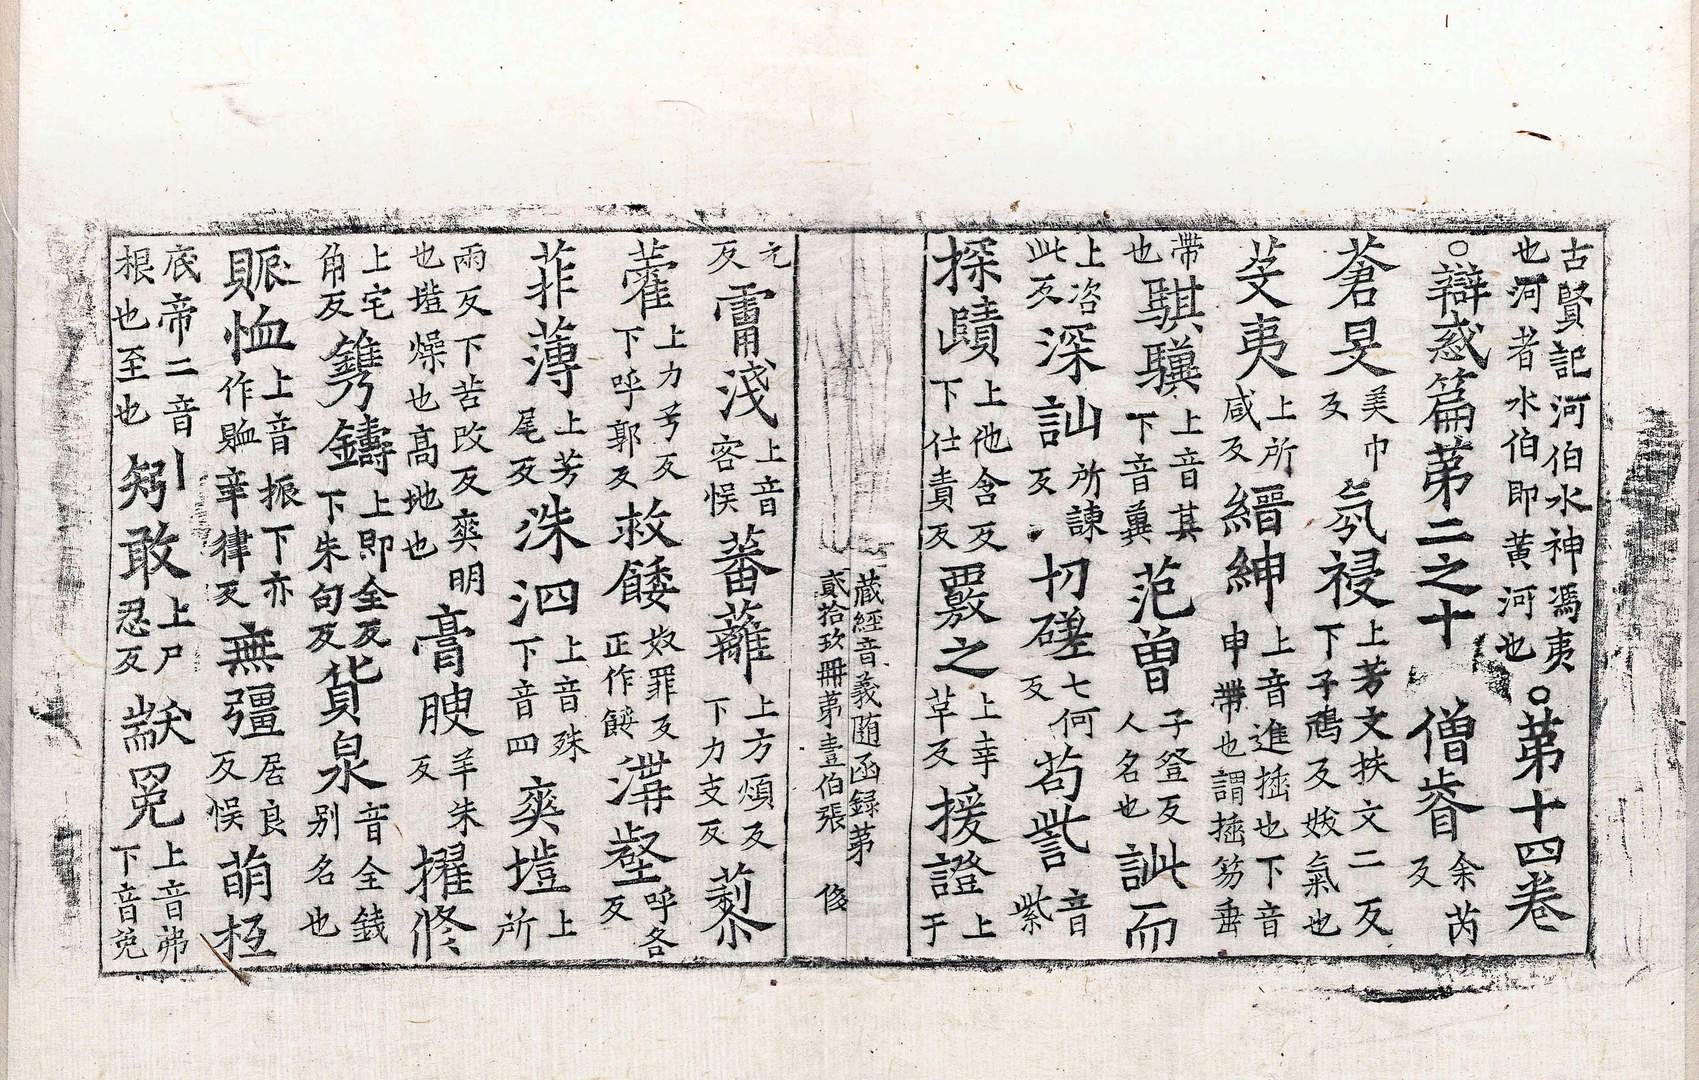 古賢記河伯水神馮夷
也河者水伯即黃河也
○第十四卷
○辯惑篇第二之十 僧𥈠余芮反
蒼旻美巾反 氛祲上芳文扶文二反下子鴆反妖氣也
芟夷上所咸反 縉紳上音進揷也下音申帶也謂揷笏垂
帶也 騏驥上音其下音冀 范曾子登反人名也 訿而
上咨此反 深訕所諫反 切磋七何反 苟訾音紫
探賾上他含反下仕責反 覈之上幸革反 援證上于
藏經音義随函録第
貳拾玖冊第壹伯張 俊
元反 霤淺上音客悮 蕃蘺上方煩反下力支反 藜
藿上力兮反下呼郭反 救餧奴罪反正作餒 溝壑呼各反
菲薄上芳尾反 洙泗上音殊下音四 爽塏上所
兩反下苦改反爽明也塏燥也高地也 膏腴羊朱反 擢修
上宅角反 鐫鑄上即全反下朱句反 貨泉音全錢別名也
賑恤上音振下亦作䘏辛律反 無彊居良反悮 萌柢
底帝二音丨根也至也 矧敢上尸忍反 㡭冕上音弗下音免